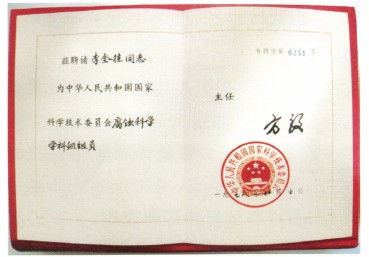 兹聘请李金桂同志
为中华人民共和国国家
科学技术委员会腐蚀科学
学科组组员
主任
方毅
中华人民共和国国家科学技术委员会